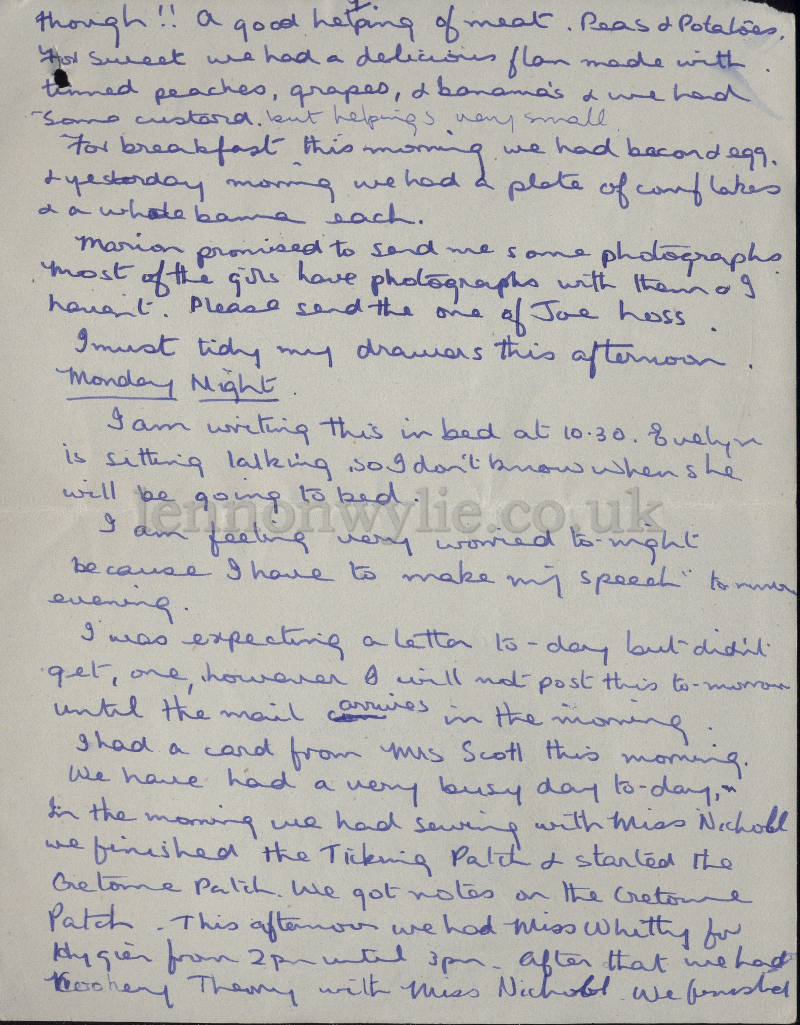 though!! A good helping of meat. Peas & Potatoes.
For sweet we had a delicious flan made with
tinned peaches, grapes, & banana's & we had
some custard. but helpings very small
For breakfast this morning we had bacon & egg.
& yesterday morning we had a plate of cornflakes
& a whole banna each.
Marion promised to send me some photographs
Most of the girls have photographs with them & I
haven't. Please send the one of Joe Loss.
I must tidy my drawers this afternoon.
Monday Night.
I am writing this in bed at 10.30. Evelyn
is sitting talking, so I don't know when she
will be going to bed.
lennonwylie.co.uk
I am feeling very worried to-night
because I have to make my "speech" tomorrow
evening.
I was expecting a letter to-day but didn't
get, one, however I will not post this to-morrow
until the mail arrives in the morning.
I had a card from Mrs Scott this morning.
We have had a very busy day to-day,
In the morning we had sewing with Miss Nicholl
we finished the Ticking Patch & started the
Cretonne Patch. We got notes on the Cretonne
Patch. This afternoon we had Miss Whitty for
Hygien from 2pm until 3pm. After that we had
Cookery Theory with Miss Nicholl. We finished